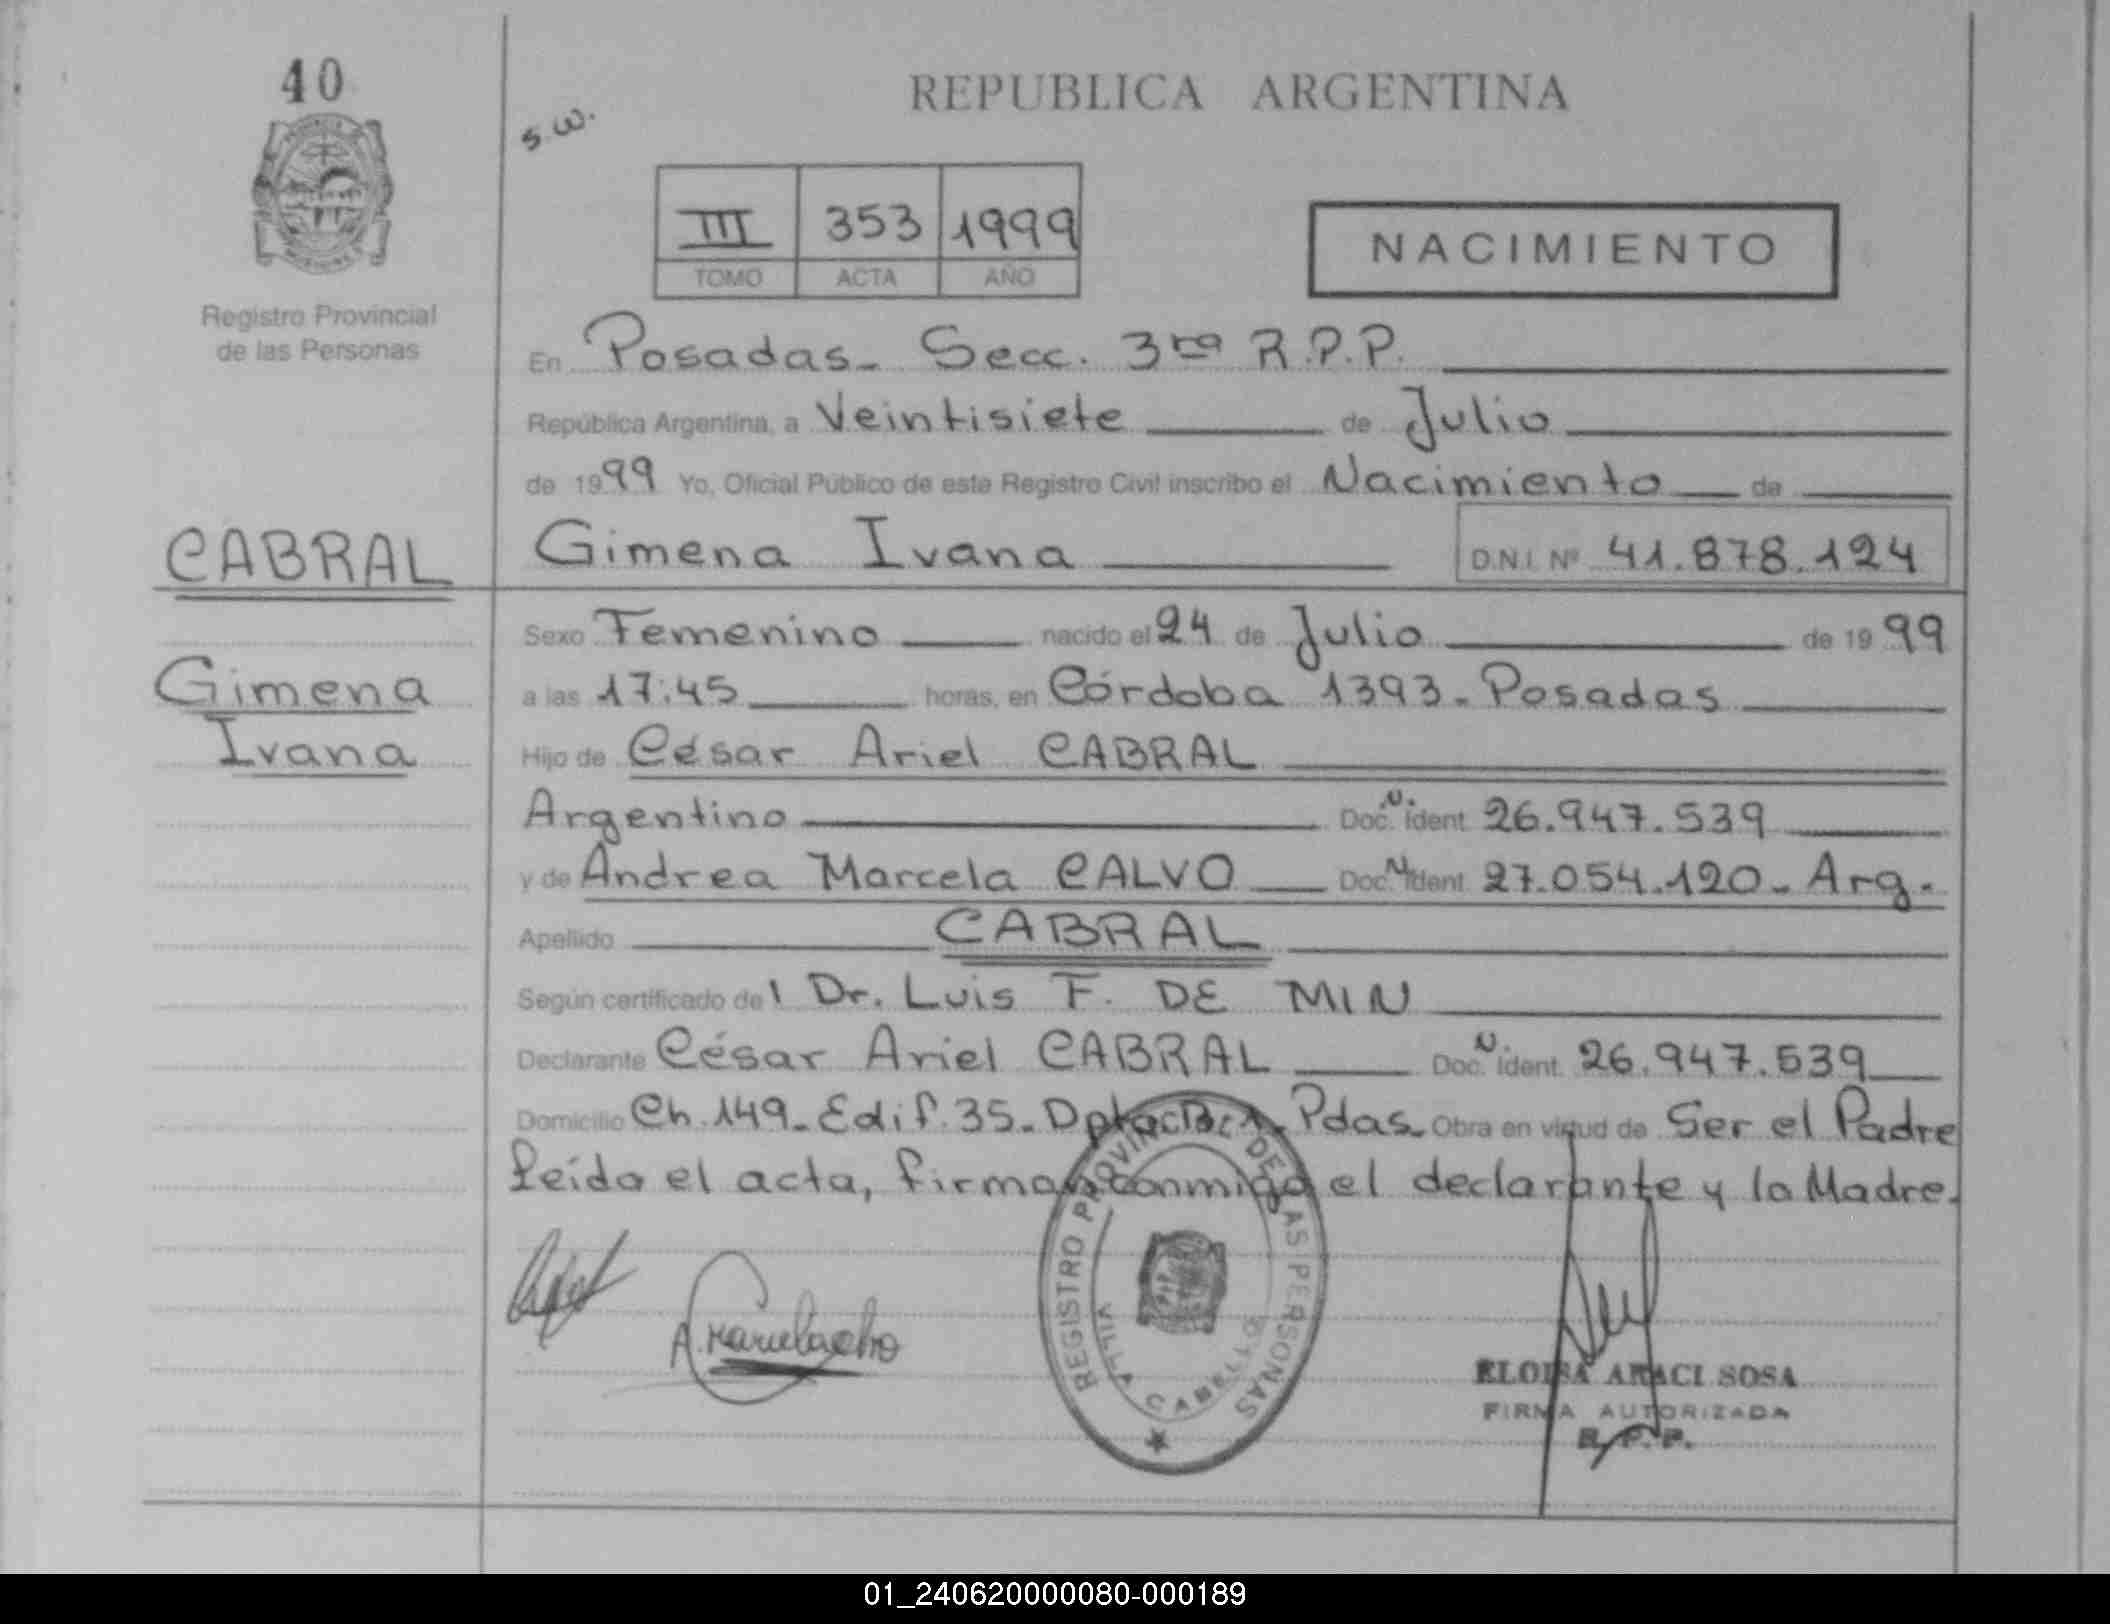 40
S.W.
REPUBLICA ARGENTINA
III 353 1999
TOMO ACTA AÑO
NACIMIENTO
Registro Provincial
de las Personas
En Posadas - Secc. 3ra R.P.P.
República Argentina, a Veintisiete de Julio
de 1999 Yo, Oficial Público de este Registro Civil inscribo el Nacimiento de
CABRAL
Gimena Ivana D.N.I. Nº 41.878.124
Sexo Femenino nacido el 24 de Julio de 1999
Gimena
Ivana
a las 17:45 horas, en Córdoba 1393 - Posadas
Hijo de César Ariel CABRAL
Argentino Doc. N. ident. 26.947.539
y de Andrea Marcela CALVO Doc. N. ident. 27.054.120 - Arg.
Apellido CABRAL
Según certificado del Dr. Luis F. DE MIN
Declarante César Ariel CABRAL Doc. N. ident. 26.947.539
Domicilio Ch. 149 - Edif. 35 - Pdas - Obra en virtud de Ser el Padre
Leída el acta, firman conmigo el declarante y la Madre.
REGISTRO PROVINCIAL DE LAS PERSONAS
VILLA CABELLO
ELOISA ARACI SOSA
FIRMA AUTORIZADA
R.P.P.
01_240620000080-000189